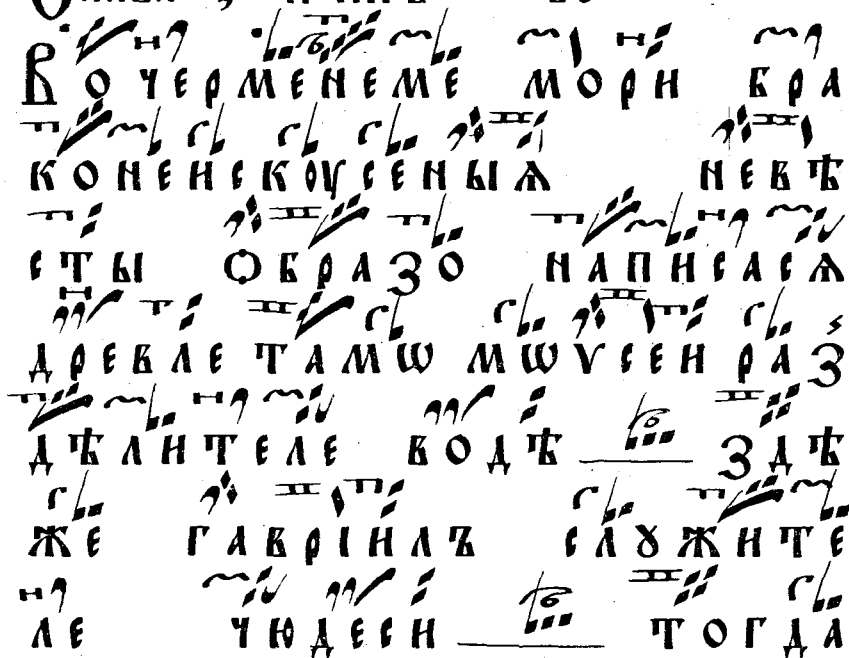 Во чермене ме мори бра
конеискоусеныѧ невѣ
сты ѻбразо написасѧ
древле тамѡ мѡѵсеи раз
дѣлителе водѣ здѣ
же гавріилъ слꙋжите
ле чюдеси тогда